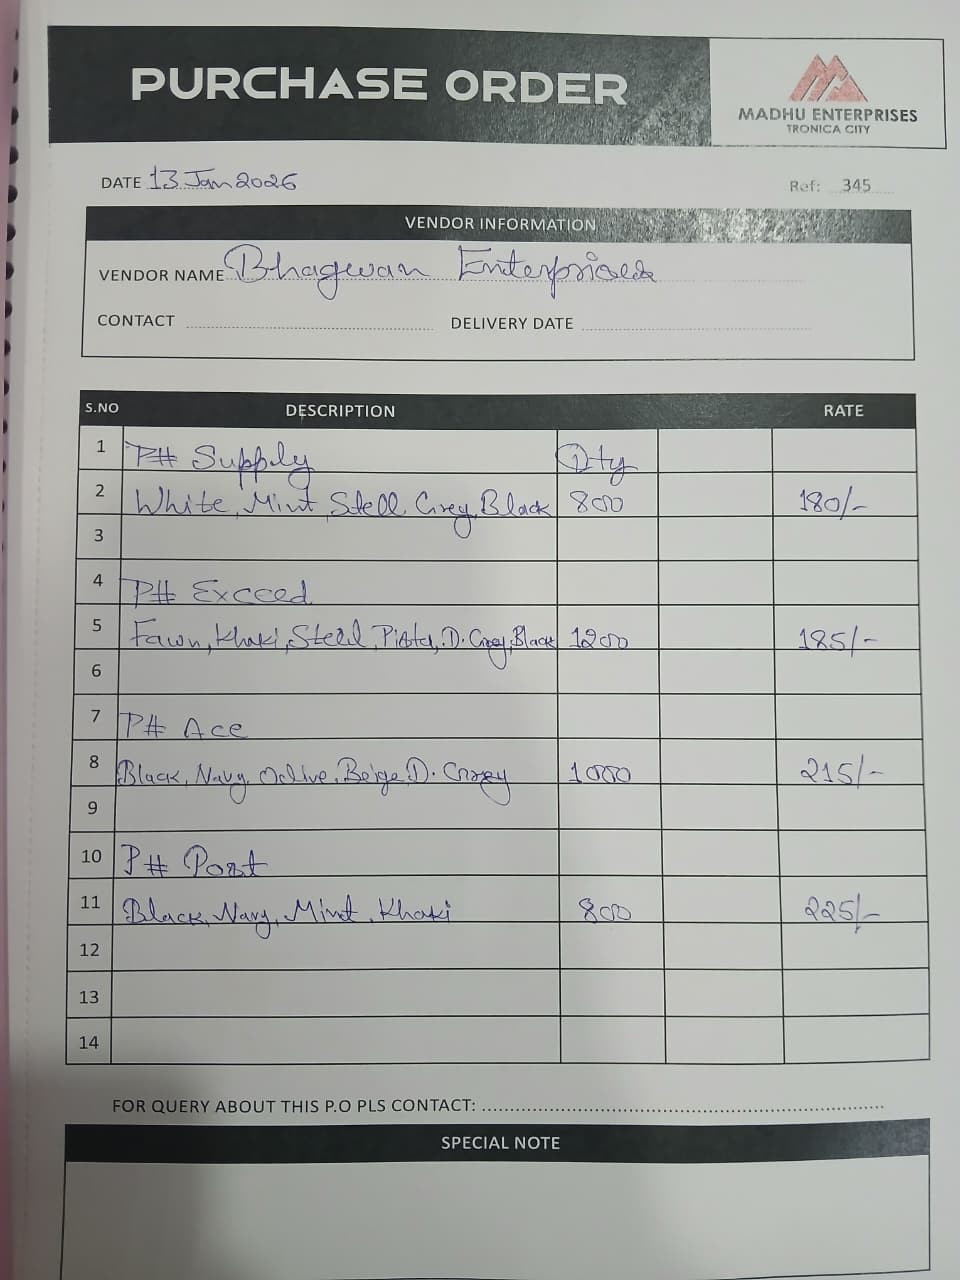 PURCHASE ORDER
MADHU ENTERPRISES
TRONICA CITY
DATE 13 Jan 2026
Ref: 345
VENDOR INFORMATION
VENDOR NAME Bhagwan Enterprises
CONTACT
DELIVERY DATE
S.NO DESCRIPTION RATE
1 P# Supply Qty
2 White, Mint, Stell, Grey, Black 800 180/-
3
4 P# Exceed
5 Fawn, Khaki, Steel, Pista, D. Grey, Black 1200 185/-
6
7 P# Ace
8 Black, Navy, Oclive, Beige, D. Grey 1000 215/-
9
10 P# Post
11 Black, Navy, Mint, Khaki 800 225/-
12
13
14
FOR QUERY ABOUT THIS P.O PLS CONTACT:
SPECIAL NOTE